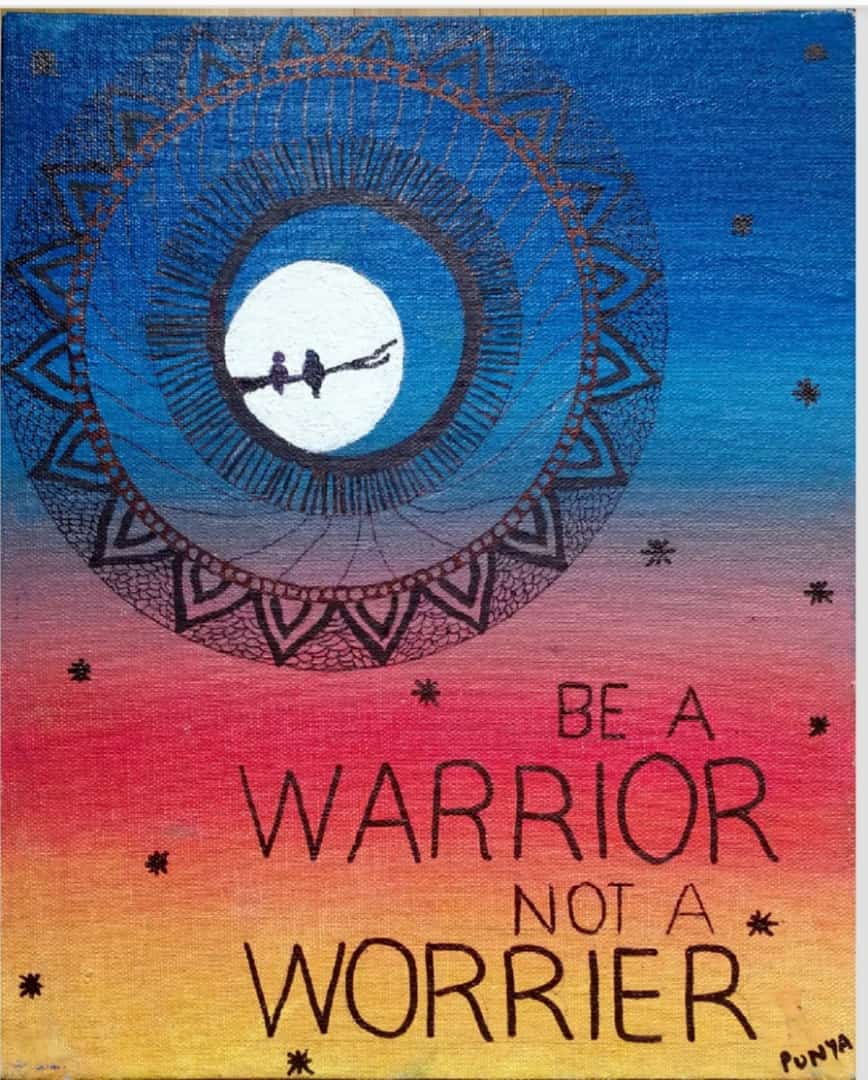 BE A
WARRIOR
NOT A
WORRIER
PUNYA